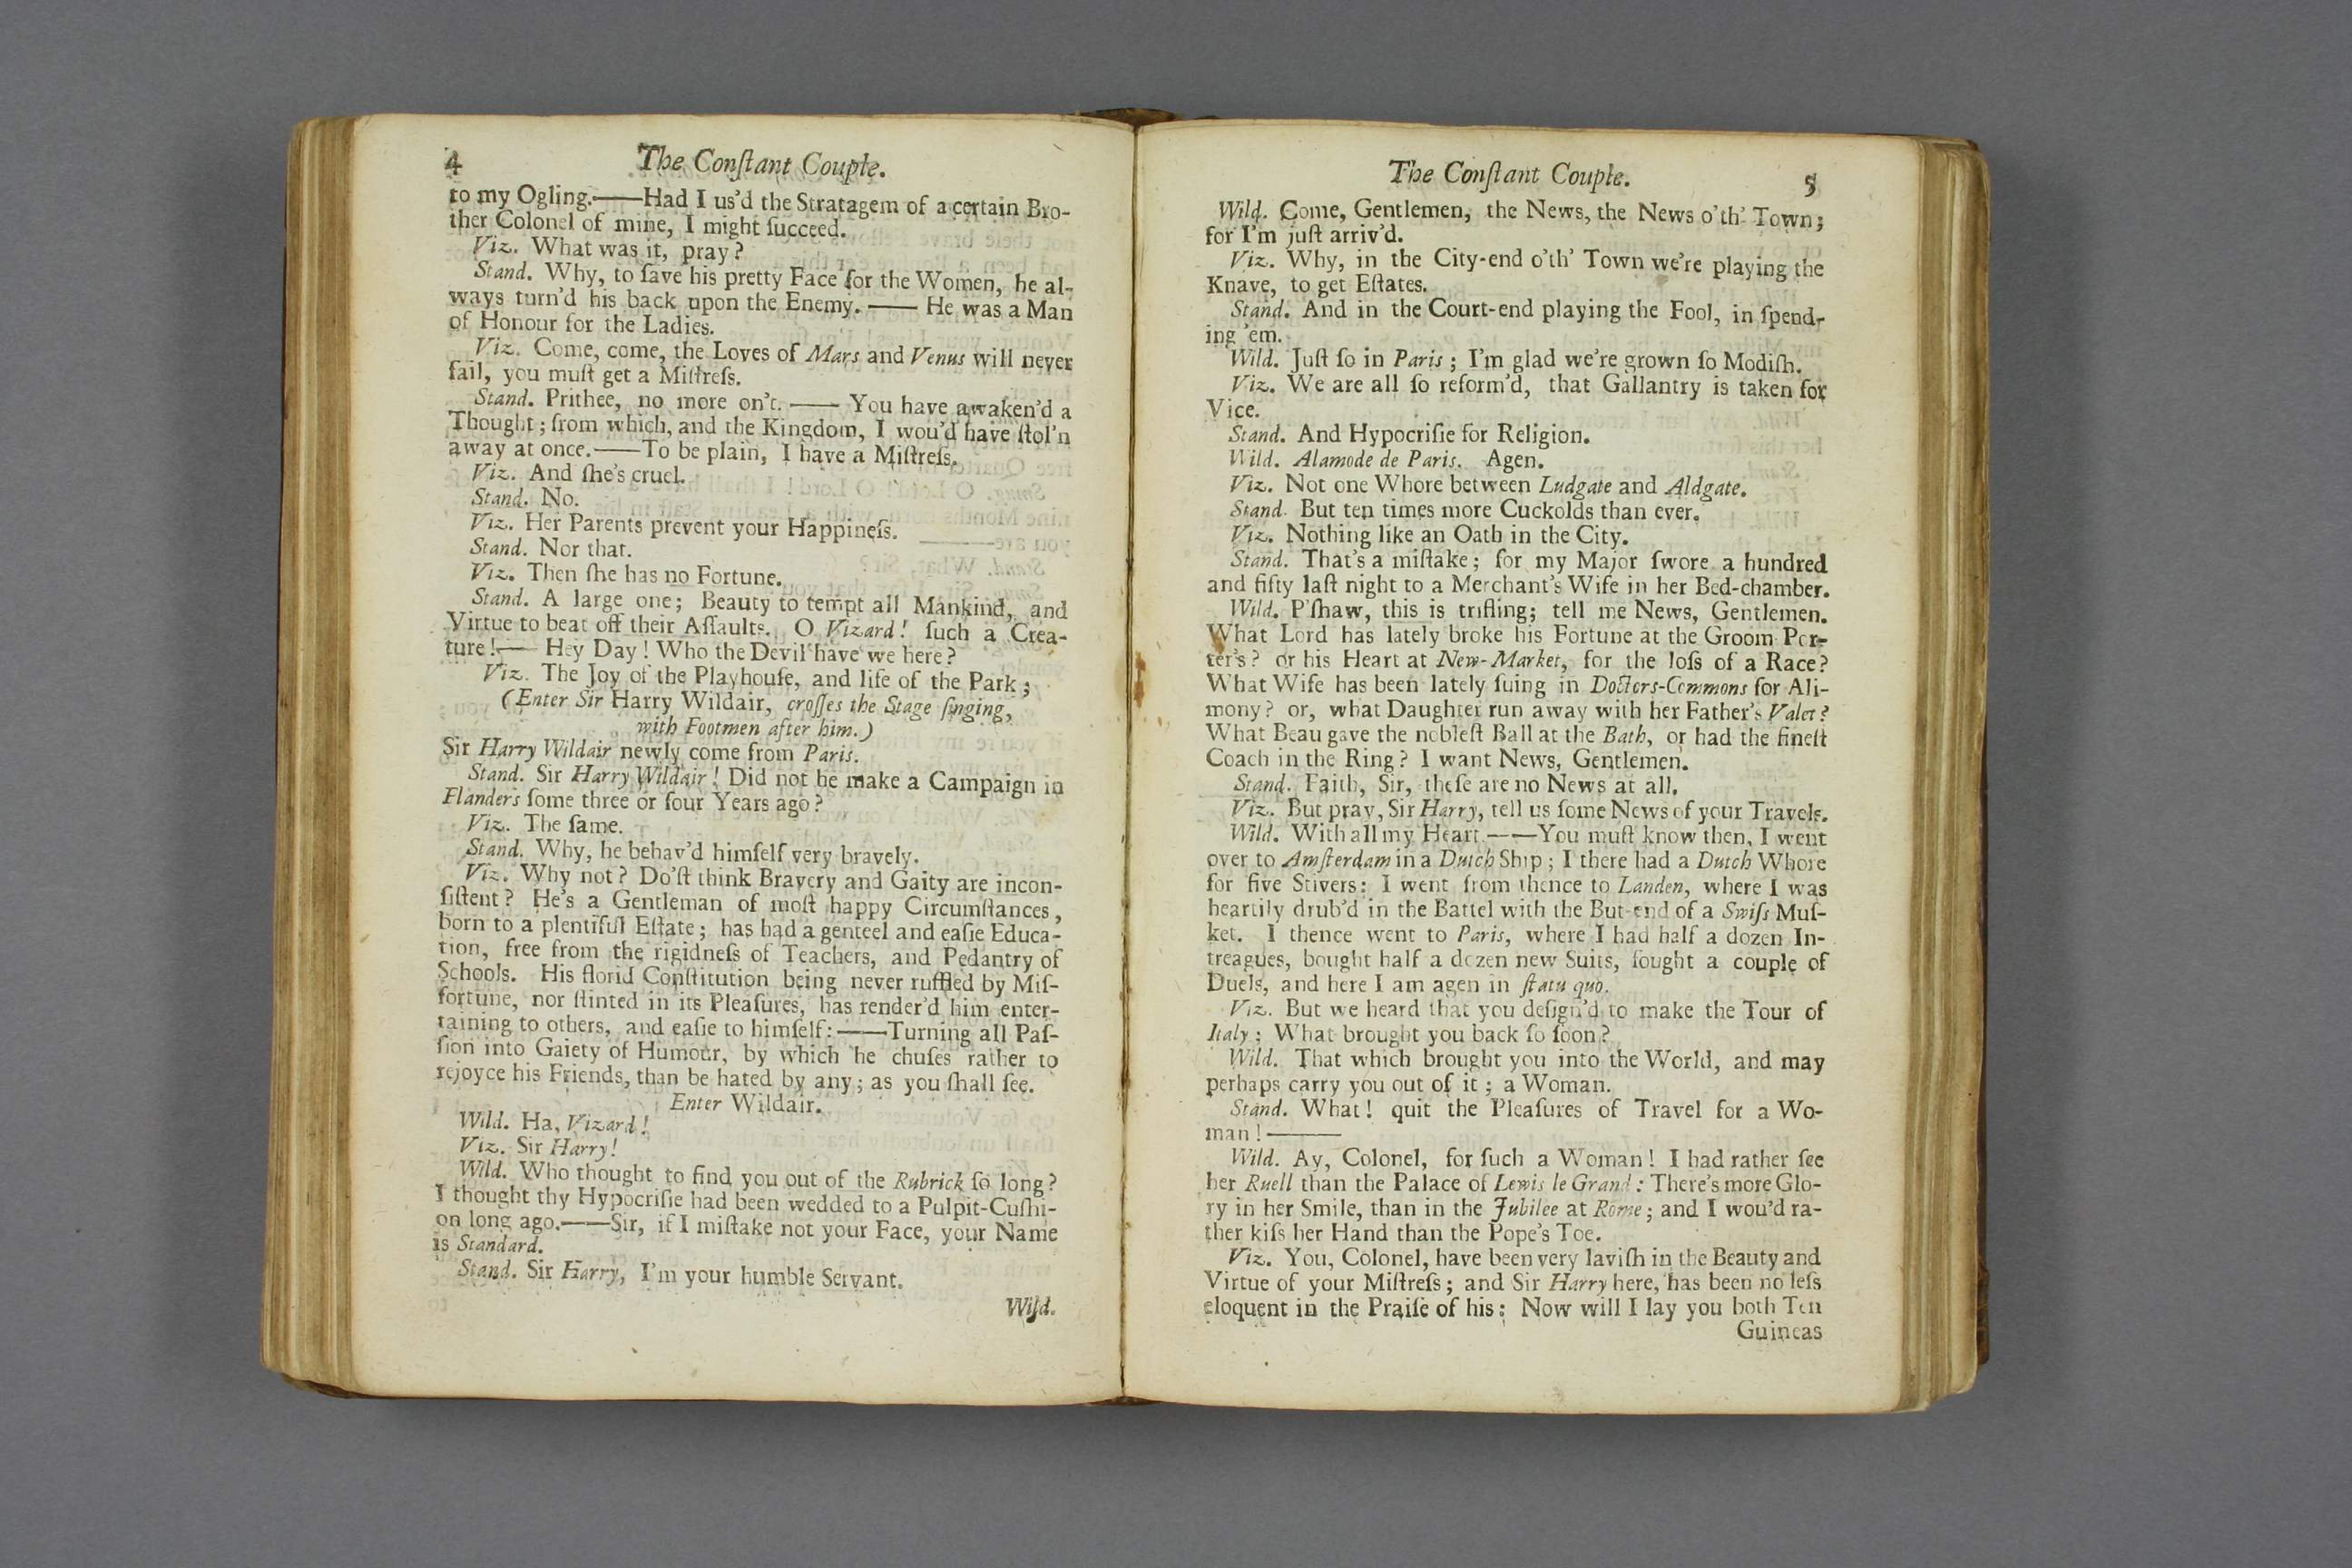 4
The Conſtant Couple.
to my Ogling.——Had I us'd the Stratagem of a certain Bro-
ther Colonel of mine, I might ſucceed.
Viz. What was it, pray?
Stand. Why, to ſave his pretty Face for the Women, he al-
ways turn'd his back upon the Enemy. —— He was a Man
of Honour for the Ladies.
Viz. Come, come, the Loves of Mars and Venus will never
fail, you muſt get a Miſtreſs.
Stand. Prithee, no more on't. —— You have awaken'd a
Thought; from which, and the Kingdom, I wou'd have ſtol'n
away at once.——To be plain, I have a Miſtreſs.
Viz. And ſhe's cruel.
Stand. No.
Viz. Her Parents prevent your Happineſs.
Stand. Nor that.
Viz. Then ſhe has no Fortune.
Stand. A large one; Beauty to tempt all Mankind, and
Virtue to beat off their Aſſaults. O Vizard! ſuch a Crea-
ture!—— Hey Day! Who the Devil have we here?
Viz. The Joy of the Playhouſe, and life of the Park;
(Enter Sir Harry Wildair, croſſes the Stage ſinging,
with Footmen after him.)
Sir Harry Wildair newly come from Paris.
Stand. Sir Harry Wildair! Did not he make a Campaign in
Flanders ſome three or four Years ago?
Viz. The ſame.
Stand. Why, he behav'd himſelf very bravely.
Viz. Why not? Do'ſt think Bravery and Gaity are incon-
ſiſtent? He's a Gentleman of moſt happy Circumſtances,
born to a plentiful Eſtate; has had a genteel and eaſie Educa-
tion, free from the rigidneſs of Teachers, and Pedantry of
Schools. His florid Conſtitution being never ruffled by Miſ-
fortune, nor ſtinted in its Pleaſures, has render'd him enter-
taining to others, and eaſie to himſelf:——Turning all Paſ-
ſion into Gaiety of Humour, by which he chuſes rather to
rejoyce his Friends, than be hated by any; as you ſhall ſee.
Enter Wildair.
Wild. Ha, Vizard!
Viz. Sir Harry!
Wild. Who thought to find you out of the Rubrick ſo long?
I thought thy Hypocriſie had been wedded to a Pulpit-Cuſhi-
on long ago.——Sir, if I miſtake not your Face, your Name
is Standard.
Stand. Sir Harry, I'm your humble Servant.
Wild.
The Conſtant Couple.
5
Wild. Come, Gentlemen, the News, the News o'th' Town;
for I'm juſt arriv'd.
Viz. Why, in the City-end o'th' Town we're playing the
Knave, to get Eſtates.
Stand. And in the Court-end playing the Fool, in ſpend-
ing 'em.
Wild. Juſt ſo in Paris; I'm glad we're grown ſo Modiſh.
Viz. We are all ſo reform'd, that Gallantry is taken for
Vice.
Stand. And Hypocriſie for Religion.
Wild. Alamode de Paris. Agen.
Viz. Not one Whore between Ludgate and Aldgate.
Stand. But ten times more Cuckolds than ever.
Viz. Nothing like an Oath in the City.
Stand. That's a miſtake; for my Major ſwore a hundred
and fifty laſt night to a Merchant's Wife in her Bed-chamber.
Wild. P'ſhaw, this is trifling; tell me News, Gentlemen.
What Lord has lately broke his Fortune at the Groom Por-
ter's? or his Heart at New-Market, for the loſs of a Race?
What Wife has been lately ſuing in Doctors-Commons for Ali-
mony? or, what Daughter run away with her Father's Valet?
What Beau gave the nobleſt Ball at the Bath, or had the fineſt
Coach in the Ring? I want News, Gentlemen.
Stand. Faith, Sir, theſe are no News at all.
Viz. But pray, Sir Harry, tell us ſome News of your Travels.
Wild. With all my Heart.——You muſt know then, I went
over to Amſterdam in a Dutch Ship; I there had a Dutch Whore
for five Stivers: I went from thence to Landen, where I was
heartily drub'd in the Battel with the But-end of a Swiſs Muſ-
ket. I thence went to Paris, where I had half a dozen In-
treagues, bought half a dozen new Suits, fought a couple of
Duels, and here I am agen in ſtatu quo.
Viz. But we heard that you deſign'd to make the Tour of
Italy; What brought you back ſo ſoon?
Wild. That which brought you into the World, and may
perhaps carry you out of it; a Woman.
Stand. What! quit the Pleaſures of Travel for a Wo-
man!———
Wild. Ay, Colonel, for ſuch a Woman! I had rather ſee
her Ruell than the Palace of Lewis le Grand: There's more Glo-
ry in her Smile, than in the Jubilee at Rome; and I wou'd ra-
ther kiſs her Hand than the Pope's Toe.
Viz. You, Colonel, have been very laviſh in the Beauty and
Virtue of your Miſtreſs; and Sir Harry here, has been no leſs
eloquent in the Praiſe of his: Now will I lay you both Ten
Guineas